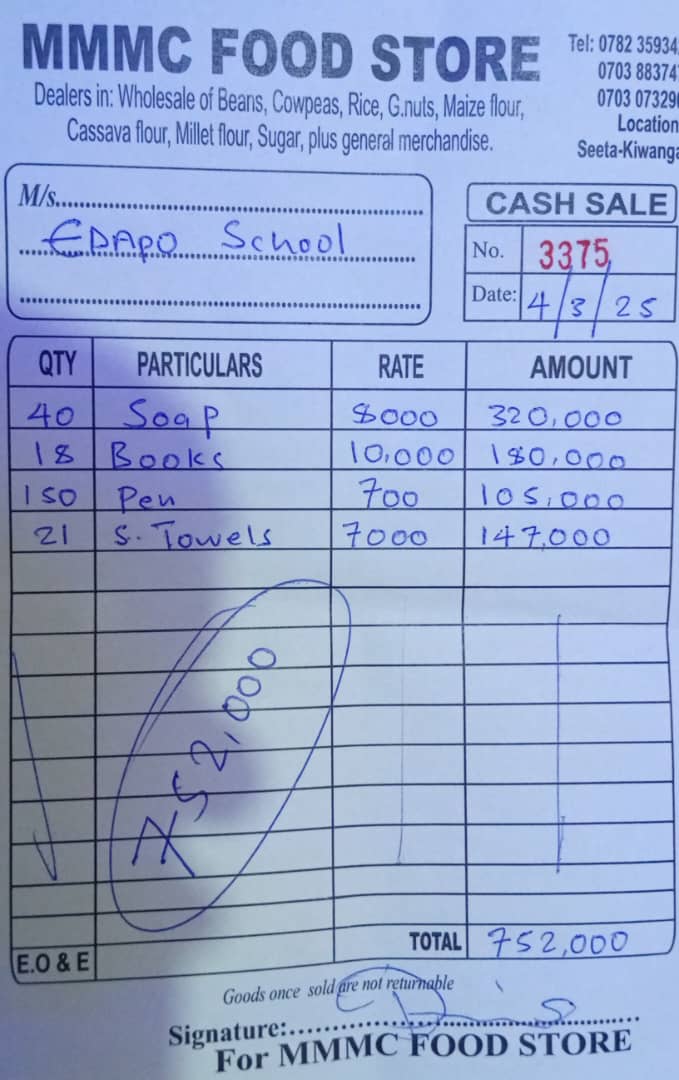 MMMC FOOD STORE
Tel: 0782 35934
0703 88374
0703 07329
Location
Seeta-Kiwanga
Dealers in: Wholesale of Beans, Cowpeas, Rice, G.nuts, Maize flour,
Cassava flour, Millet flour, Sugar, plus general merchandise.
M/s.
EDAPO School
CASH SALE
No. 3375
Date: 4/3/25
QTY PARTICULARS RATE AMOUNT
40 Soap 8000 320,000
18 Books 10,000 180,000
150 Pen 700 105,000
21 S. Towels 7000 147,000
752,000
TOTAL 752,000
E.O & E
Goods once sold are not returnable
Signature:
For MMMC FOOD STORE